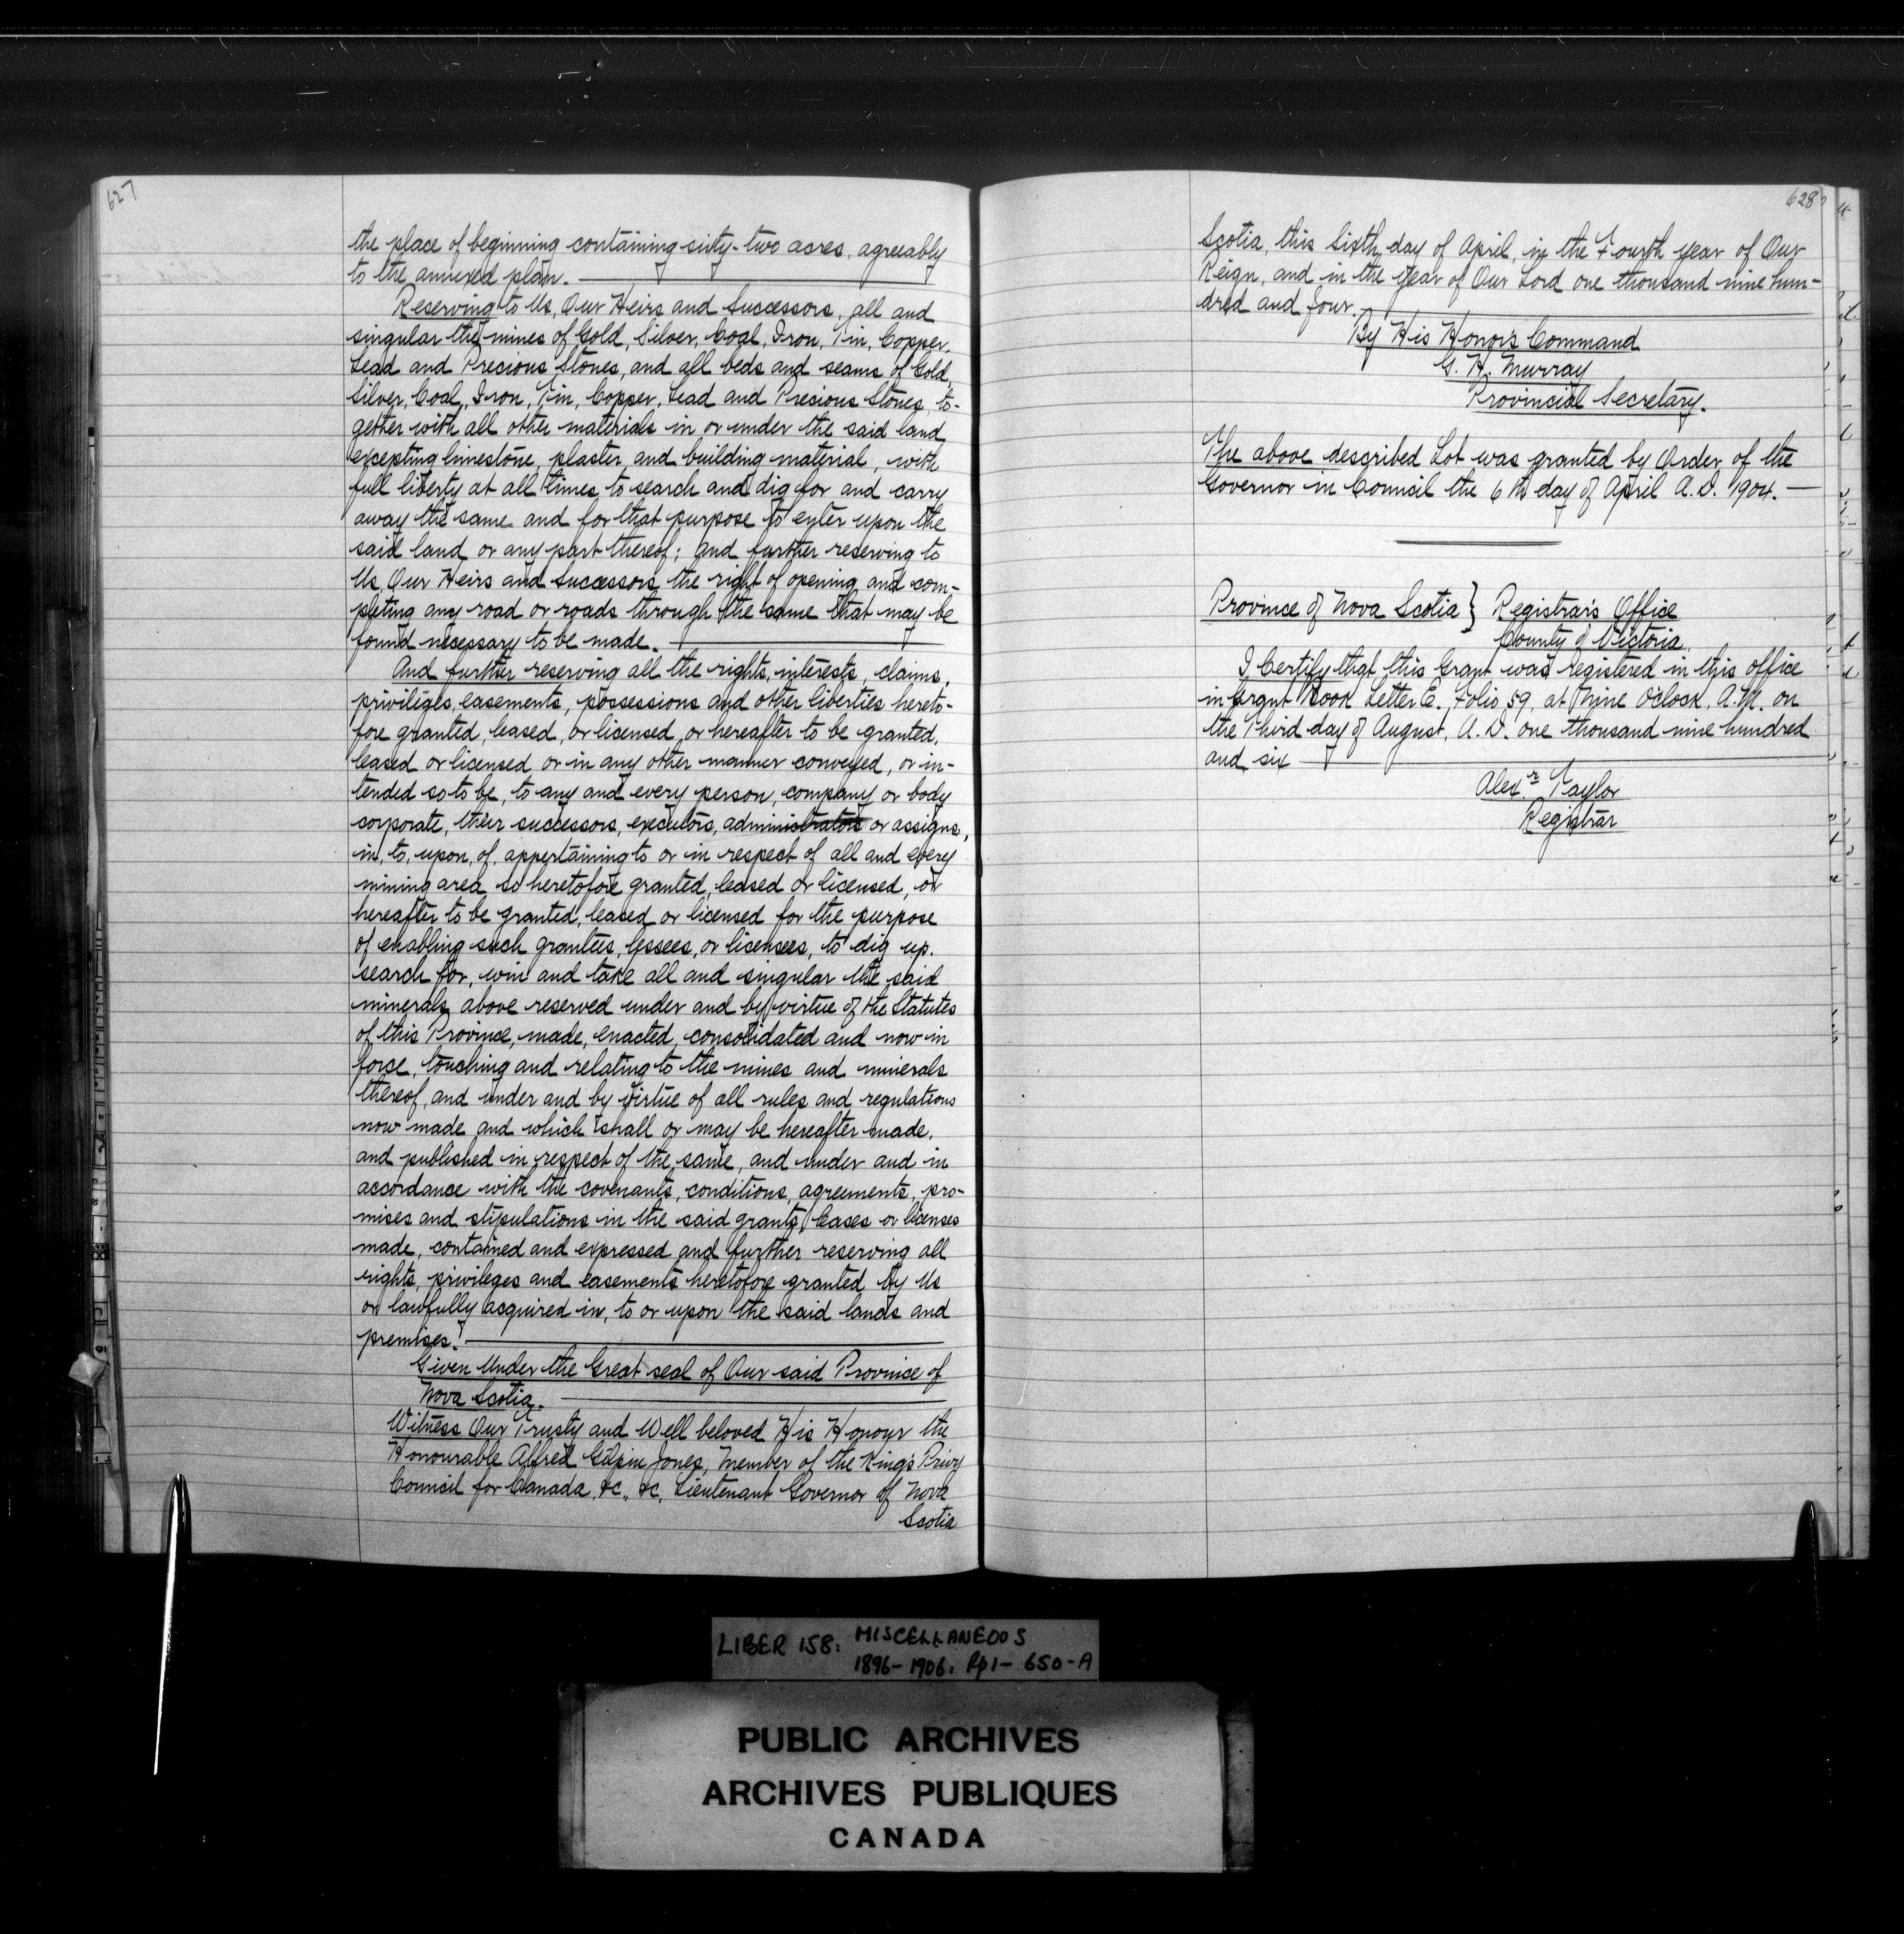 627
the place of beginning containing sixty-two acres, agreeably
to the annexed plan.
Reserving to Us, Our Heirs and Successors, all and
singular the mines of Gold, Silver, Coal, Iron, Tin, Copper,
Lead and Precious Stones, and all beds and seams of Gold,
Silver, Coal, Iron, Tin, Copper, Lead and Precious Stones, to-
gether with all other materials in or under the said land
excepting limestone, plaster and building material, with
full liberty at all times to search and dig for and carry
away the same and for that purpose to enter upon the
said land or any part thereof; and further reserving to
Us, Our Heirs and Successors, the right of opening and com-
pleting any road or roads through the same that may be
found necessary to be made.
And further reserving all the rights, interests, claims,
priviliges, easements, possessions and other liberties hereto-
fore granted, leased, or licensed, or hereafter to be granted,
leased or licensed or in any other manner conveyed, or in-
tended so to be, to any and every person, company or body
corporate, their successors, executors, administrators or assigns,
in, to, upon, of, appertaining to or in respect of all and every
mining area so heretofore granted, leased or licensed, or
hereafter to be granted, leased or licensed for the purpose
of enabling such grantees, lessees, or licensees, to dig up,
search for, win and take all and singular the said
minerals above reserved under and by virtue of the Statutes
of this Province, made, enacted, consolidated and now in
force, touching and relating to the mines and minerals
thereof, and under and by virtue of all rules and regulations
now made and which shall or may be hereafter made,
and published in respect of the same, and under and in
accordance with the covenants, conditions, agreements, pro-
mises and stipulations in the said grants, leases or licenses
made, contained and expressed and further reserving all
rights, privileges and easements heretofore granted by Us
or lawfully acquired in, to or upon the said lands and
premises.
Given Under the Great seal of Our said Province of
Nova Scotia.
Witness Our Trusty and Well beloved His Honour the
Honourable Alfred Gilpin Jones, Member of the King's Privy
Council for Canada, &c., &c, Lieutenant Governor of Nova
Scotia
628
Scotia, this Sixth day of April, in the Fourth year of Our
Reign, and in the year of Our Lord one thousand nine hun-
dred and four.
By His Honor's Command
G. H. Murray
Provincial Secretary.
The above described Lot was granted by Order of the
Governor in Council the 6th day of April A.D. 1904.
Province of Nova Scotia } Registrar's Office
County of Victoria.
I Certify that this Grant was registered in this office
in Grant Book Letter E. Folio 59, at Nine O'clock, A.M. on
the Third day of August, A.D. one thousand nine hundred
and six
Alexr. Taylor
Registrar
LIBER 158: MISCELLANEOUS
1896-1906: Pp1-650-A
PUBLIC ARCHIVES
ARCHIVES PUBLIQUES
CANADA